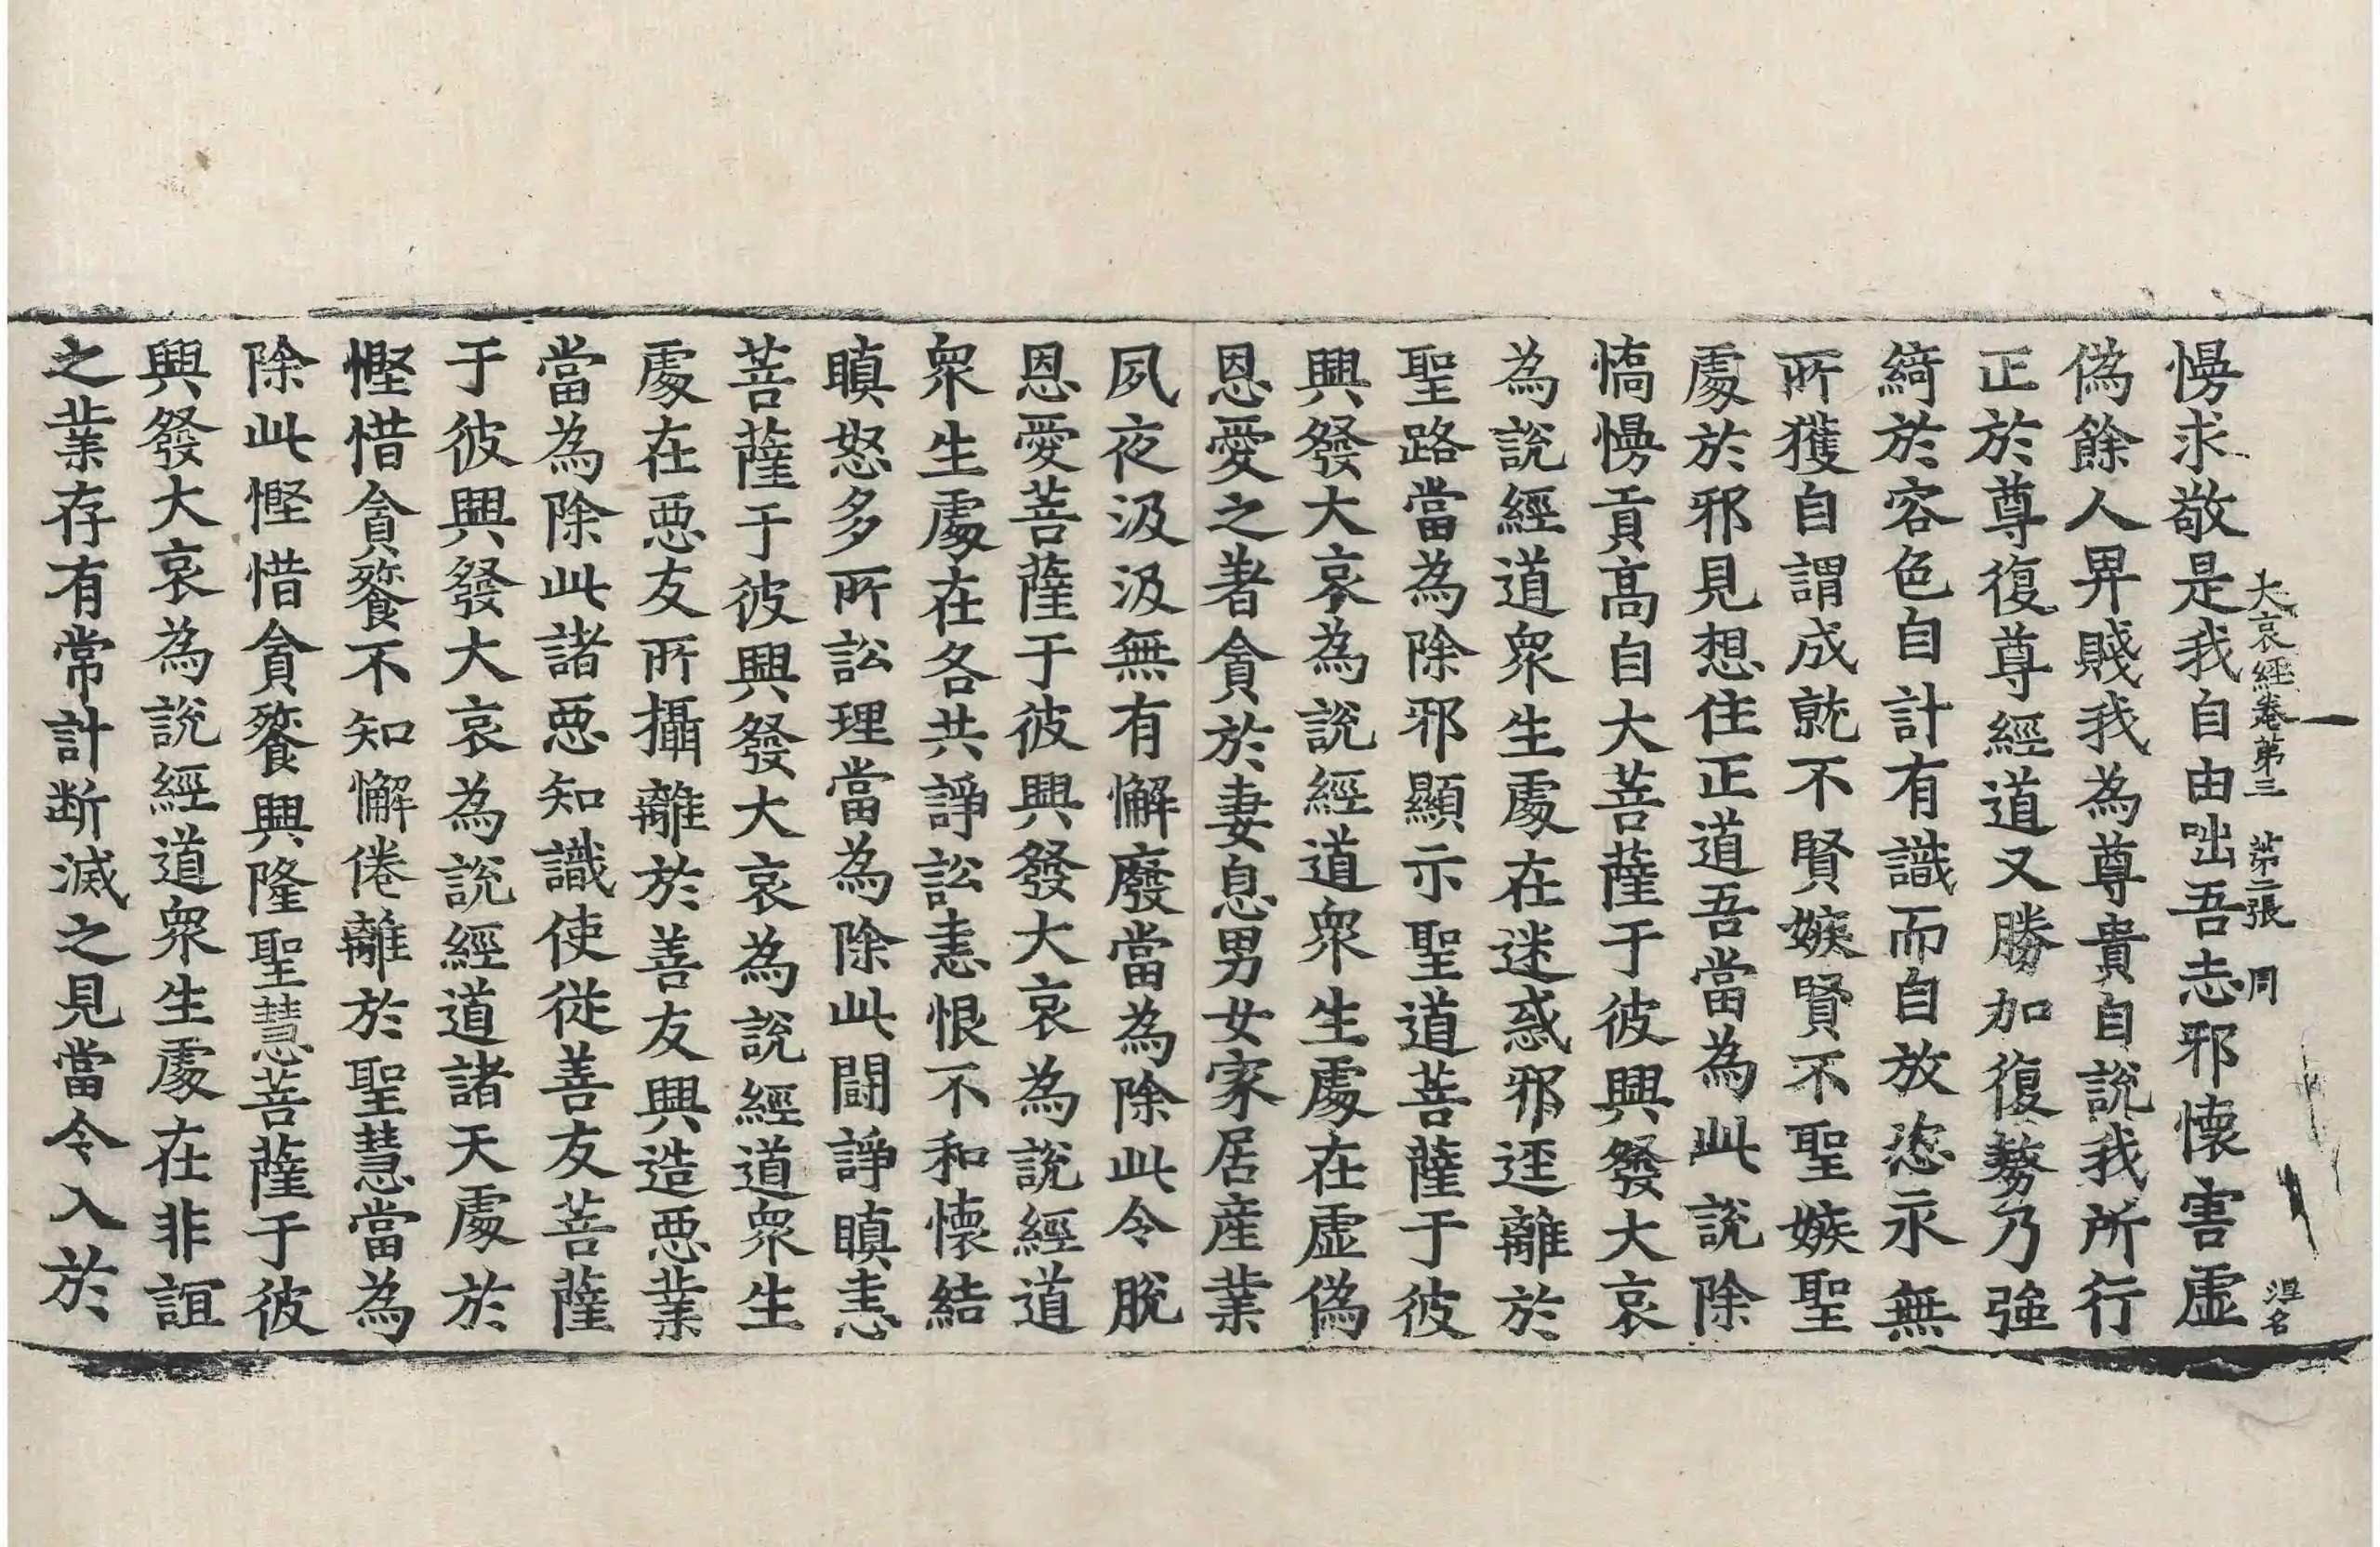 大哀經卷第三 第二張 周
淂名
慢求敬是我自由咄吾志邪懷害虛
偽餘人畀賤我為尊貴自說我所行
正於尊復尊經道又勝加復勢乃強
綺於容色自計有識而自放恣永無
所獲自謂成就不賢嫉賢不聖嫉聖
處於邪見想住正道吾當為此說除
憍慢貢高自大菩薩于彼興發大哀
為說經道衆生處在迷惑邪逕離於
聖路當為除邪顯示聖道菩薩于彼
興發大哀為說經道衆生處在虛偽
恩愛之著貪於妻息男女家居產業
夙夜汲汲無有懈廢當為除此令脫
恩愛菩薩于彼興發大哀為說經道
衆生處在各共諍訟恚恨不和懷結
瞋怒多所訟理當為除此鬪諍瞋恚
菩薩于彼興發大哀為說經道衆生
處在惡友所攝離於善友興造惡業
當為除此諸惡知識使從善友菩薩
于彼興發大哀為說經道諸天處於
慳惜貪餮不知懈倦離於聖慧當為
除此慳惜貪餮興隆聖慧菩薩于彼
興發大哀為說經道衆生處在非誼
之業存有常計断滅之見當令入於